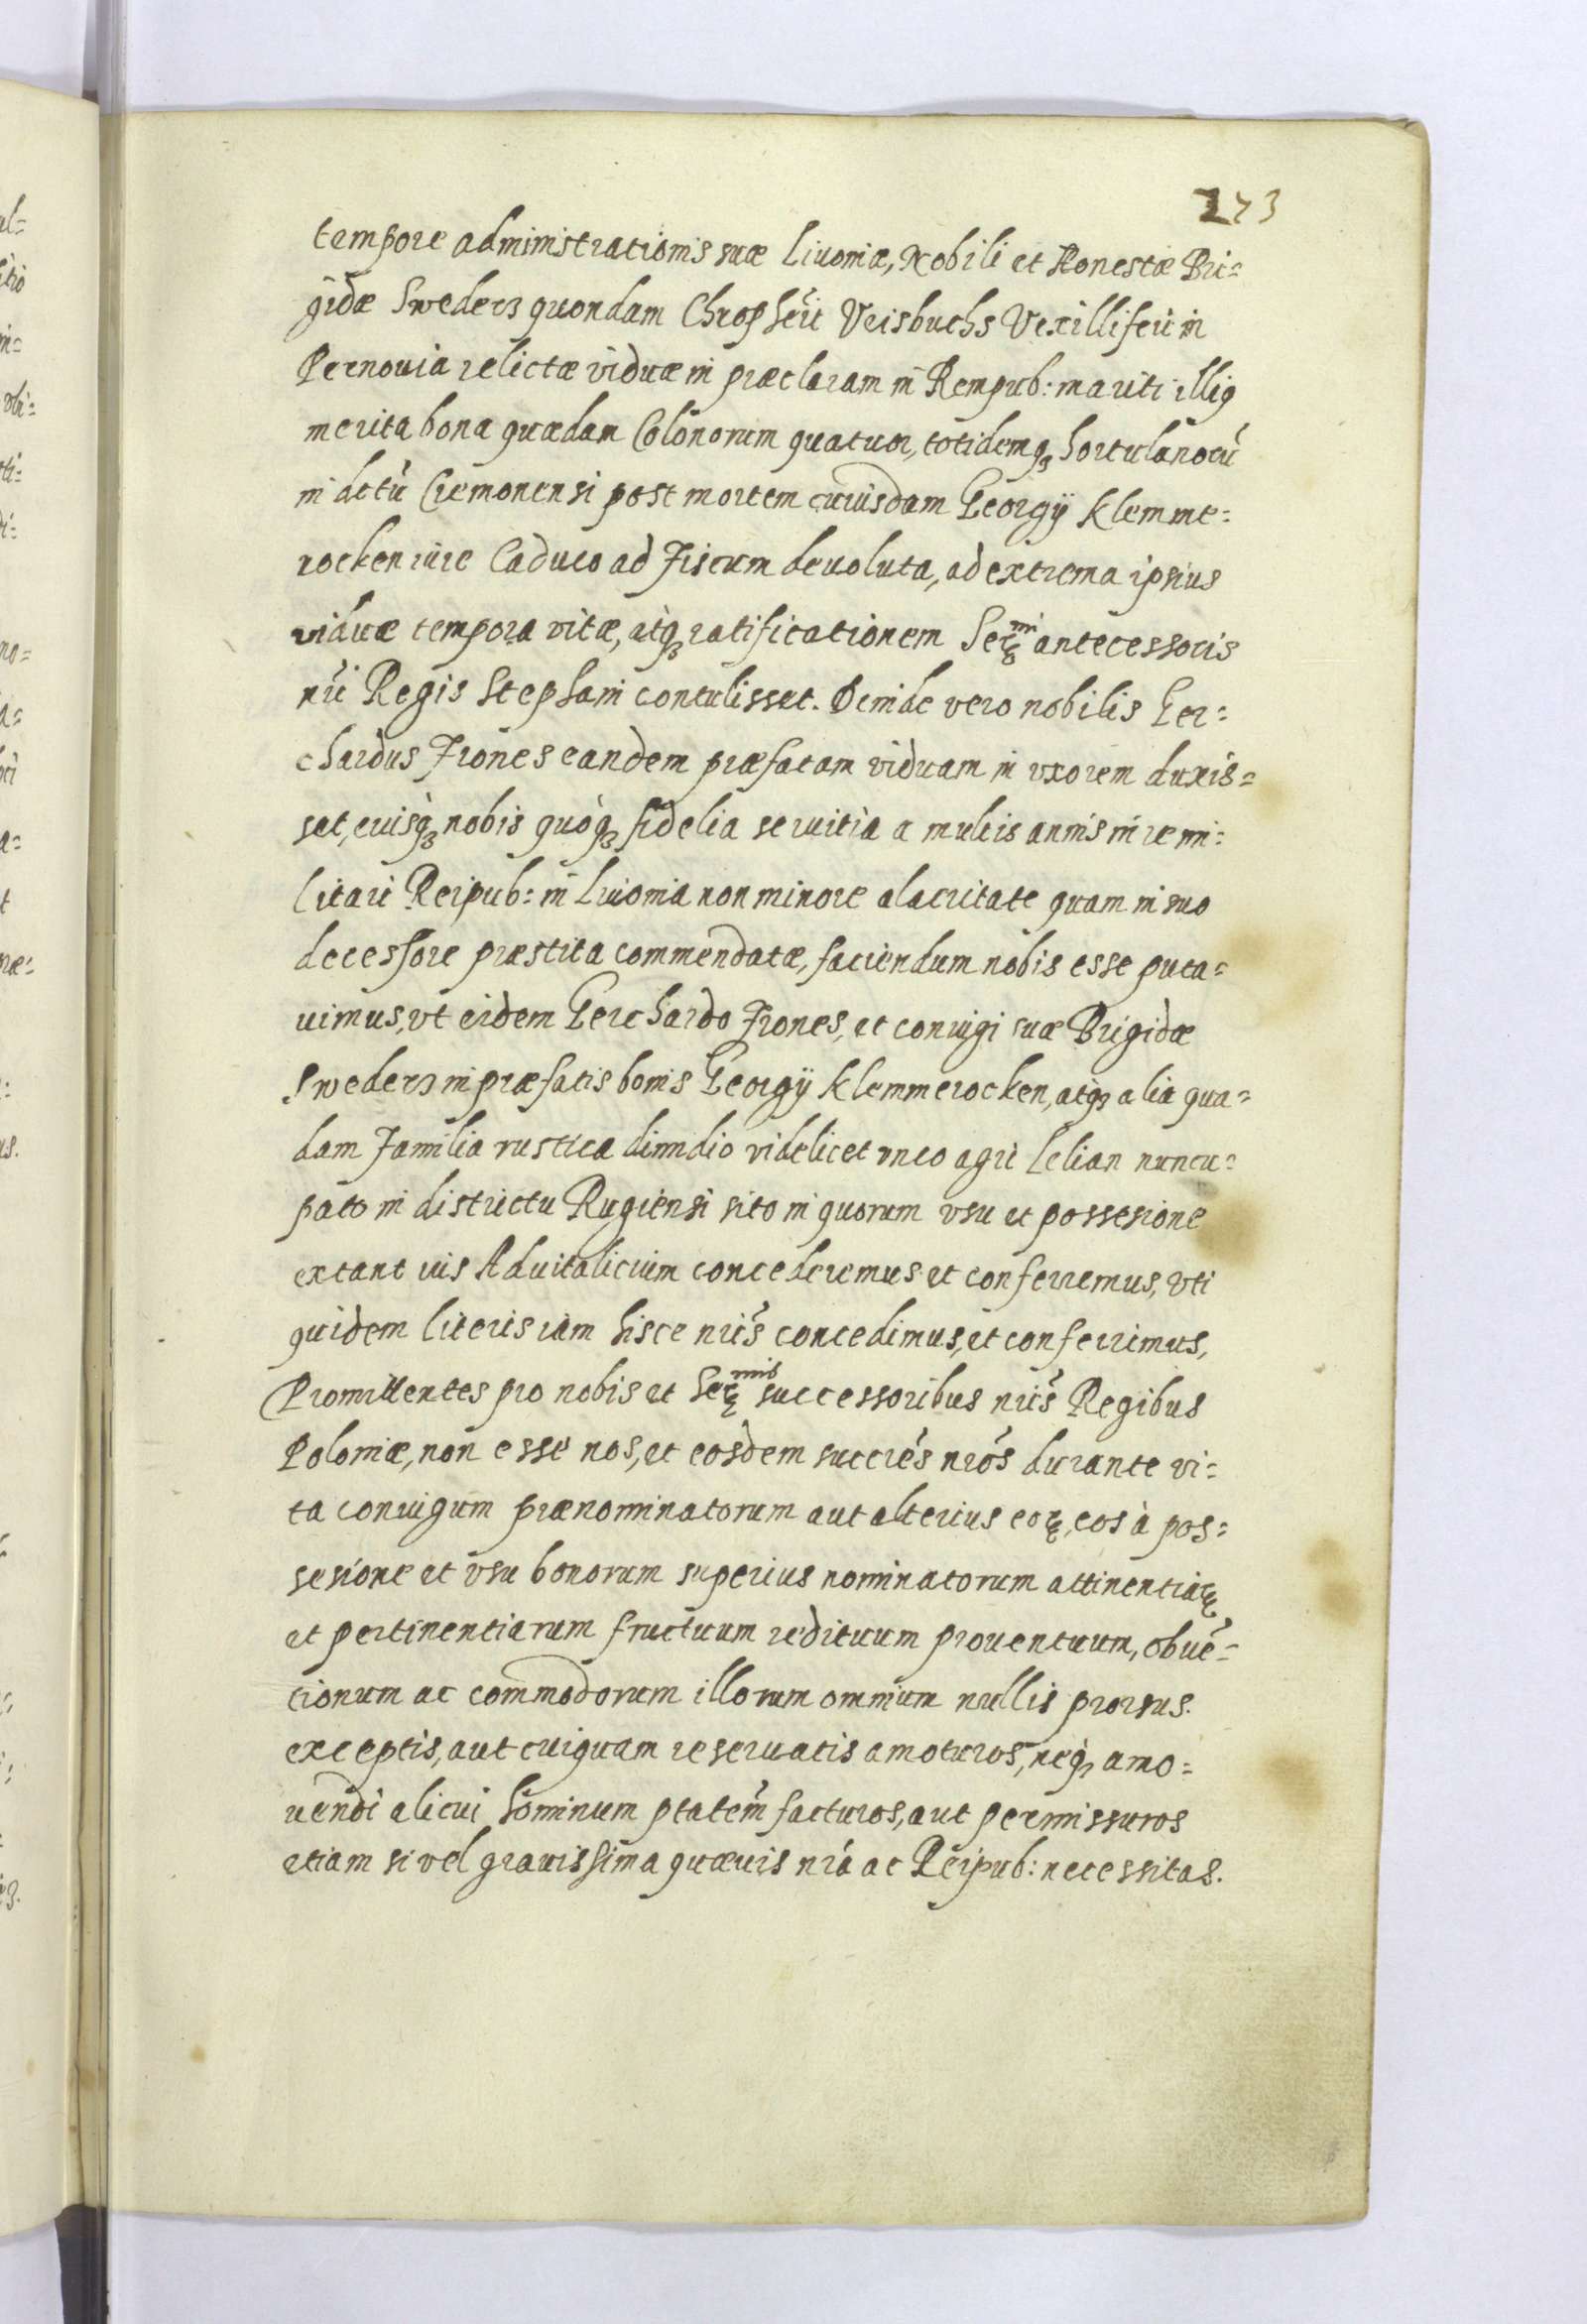 273
tempore administrationis suæ Liuoniæ, Nobili et Honestæ Bri=
gidæ Sweders quondam Chrophẽri Veisbuchs Vexilliferi in
Pernouia relictæ viduæ in præclaram in Rempub: mariti illiꝰ
merita bona quædam Colonorum quatuor, totidemqꝫ hortulanorũ
in dctũ Cremonensi post mortem cuiusdam Georgÿ Klemme=
rocken iure Caduco ad Fiscum deuoluta, ad extrema ipsius
viduæ tempora vitæ, atqꝫ ratificationem Serᵐⁱ antecessoris
nři Regis Stephani contulisset. Deinde vero nobilis Ger=
chardus Frones eandem præfatam viduam in vxorem duxis=
set, euisqꝫ nobis quoqꝫ fidelia seruitia a multis annis in re mi=
litari Reipub: in Liuonia non minore alacritate quam in suo
decessore præstita commendatæ, faciendum nobis esse puta=
uimus, vt eidem Gerchardo Frones, et coniugi suæ Brigidæ
Sweders in præfatis bonis Georgÿ Klemmerocken, atqꝫ alia qua=
dam Familia rustica dimidio videlicet vnco agri Lelian nuncu=
pato in districtu Rugiensi sito in quorum vsu et possesione
extant ius Aduitalicium concederemus et conferremus, vti
quidem literis iam hisce nřis concedimus, et conferrimus,
Promittentes pro nobis et Serᵐⁱˢ successoribus nřis Regibus
Poloniæ, non esse nos, et eosdem succřes nřos durante vi=
ta coniugum prænominatorum aut alterius eoꝝ, eos à pos=
sesione et vsu bonorum superius nominatorum attinentiaꝝ
et pertinentiarum fructuum redituum prouentuum, obuẽ=
tionum ac commodorum illorum omnium nullis prorsus.
exceptis, aut cuiquam reseruatis amoturos, neqꝫ amo=
uendi alicui hominum ptatem̃ facturos, aut permissuros
etiam si vel grauissima quæuis nřa ac Reipub: necessitas.